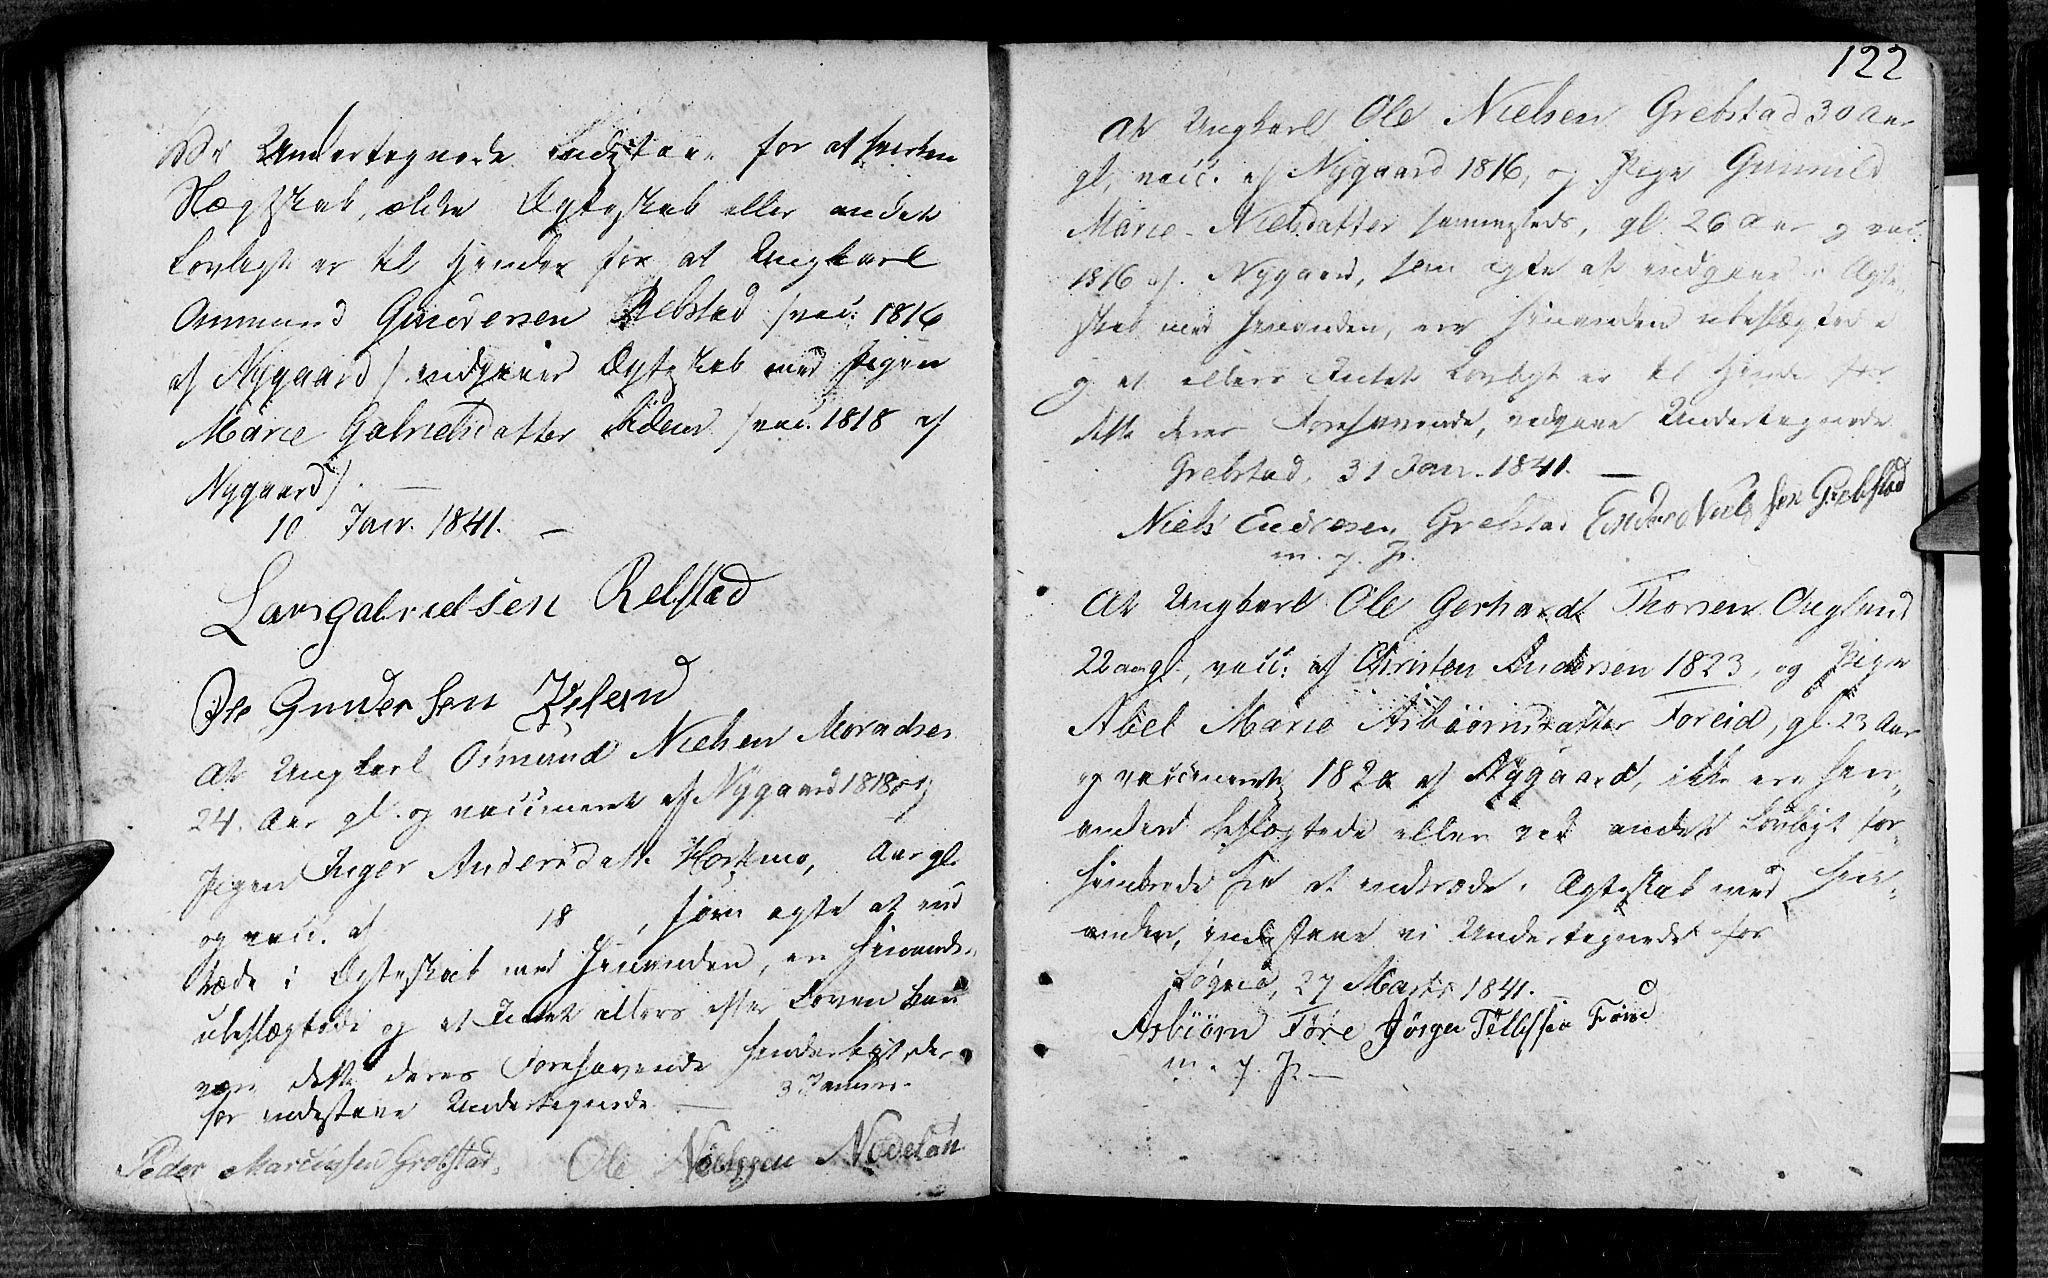 Vi Undertegnede indestaae for at hverken
Slægtskab, ældre Ægteskab eller andet
Lovligt er til Hinder for at Ungkarl
Aanmund Gundersen Rebstad /: vac: 1816
af Nygaard :/ indgaaer Ægteskab med Pigen
Marie Gabrielsdatter /: vac. 1818 af
Nygaard :/. —
10 Janr. 1841. —
Lars gabrielsen Relstad
Ole Gunder sen
At Ungkarl Osmund Nielsen
24. Aar gl. og vaccineret af Nygaard 1818 og
Pigen Inger Andersdatr. Aar gl.
og vacc. af 18 , som agte at ind
træde i Ægteskab med Hinanden, ere Hinanden
ubeslægtede og at Intet ellers efter Loven kan
være dette deres Forehavende hinderligt, der
for indestaae Undertegnede — 3 Januar.
Peder Marcussen Grebstad. Ole
122
At Ungkarl Ole Nielsen Grebstad 30 Aar
gl, vacc. af Nygaard 1816, og Pige Gunnild
Marie Nielsdatter sammesteds, gl. 26 Aar og vac.
1816 af Nygaard, som agte at indgaae Ægte-
skab med Hinanden, ere Hinanden ubeslægtede
og at ellers Intet Lovligt er til Hinder for
dette deres Forehavende, vedgaae Undertegnede
Grebstad, 31 Jan. 1841. —
Niels Endresen Grebstad Niels sen Grebstad
m. f. P.
At Ungkarl Ole Gerhardt Thorsen Øuglend
22 aar gl., vacc: af Christen Andersen 1823, og Pige
Abel Marie Asbiørnsdatter Foreid, gl. 23 Aar
og vaccineret 182 af Nygaard, ikke ere hin-
anden beslægtede eller ved andet Lovligt for-
hindrede fra at indtræde i Ægteskab med hin-
anden, indestaae vi Undertegnede for
Søgne, 27 Marts 1841. —
Asbiørn Føre Jørgen Tellefsen
m. f. P. —